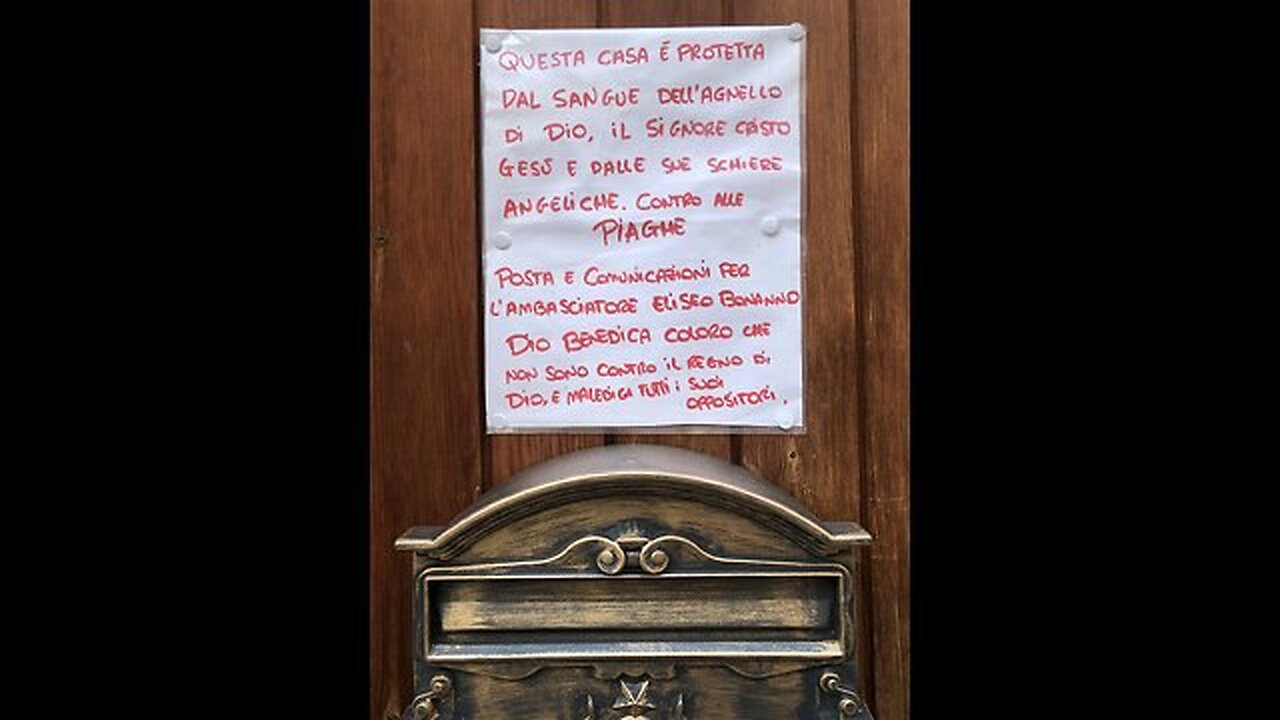 QUESTA CASA É PROTETTA
DAL SANGUE DELL'AGNELLO
Di Dio, iL SiGNORE CRiSTO
GESÙ E DALLE SUE SCHIERE
ANGELiCHE. CONTRO ALLE
PIAGHE
POSTA E COMUNiCAZiONi PER
L'AMBASCiATORE ELiSEO BONANNO
DiO BENEDiCA COLORO CHE
NON SONO CONTRO iL REGNO Di
DiO, E MALEDiCA TUTTi i SUOi
OPPOSiTORi.